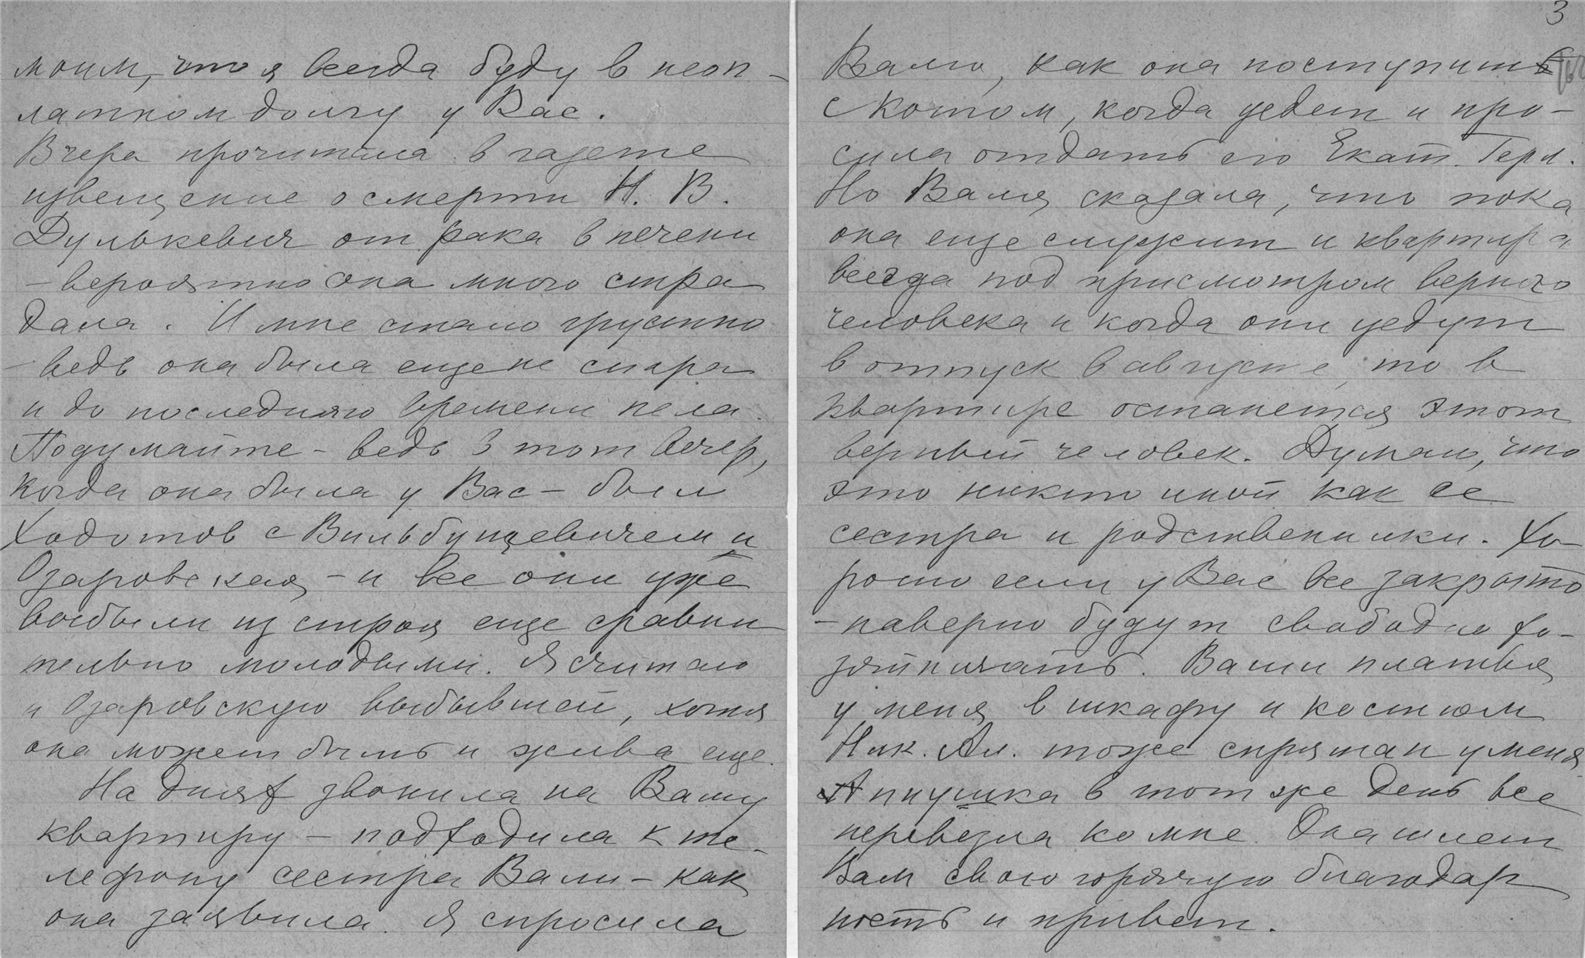 моим, что я всегда буду в неоп-
латном долгу у Вас.
Вчера прочитала в газете
извещение о смерти Н. В.
Дулькевич от рака в печени
- вероятно она много стра
дала. И мне стало грустно
- ведь она была еще не стара
и до последнего времени пела.
Подумайте - ведь в тот вечер,
когда она была у Вас - был
Ходотов с Вильбушевичем и
Озаровская - и все они уже
выбыли из строя еще сравни
тельно молодыми. Я считаю
и Озаровскую выбывшей, хотя
она может быть и жива еще.
На днях звонила на Вашу
квартиру - подходила к те-
лефону сестра Вали - как
она заявила. Я спросила
3
Валю, как она поступит
с котом, когда уедет и про-
сила отдать его Екат. Герм.
Но Валя сказала, что пока
она еще служит и квартира
всегда под присмотром верного
человека и когда они уедут
в отпуск в августе, то в
квартире останется этот
верный человек. Думаю, что
это никто иной как ее
сестра и родственники. Хо-
рошо если у Вас все закрыто
- наверно будут свободно хо-
зяйничать. Ваши платья
у меня в шкафу и костюм
Ник. Ал. тоже спрятан у меня
Аннушка в тот же день все
перевезла ко мне. Она шлет
Вам свою горячую благодар
ность и привет.